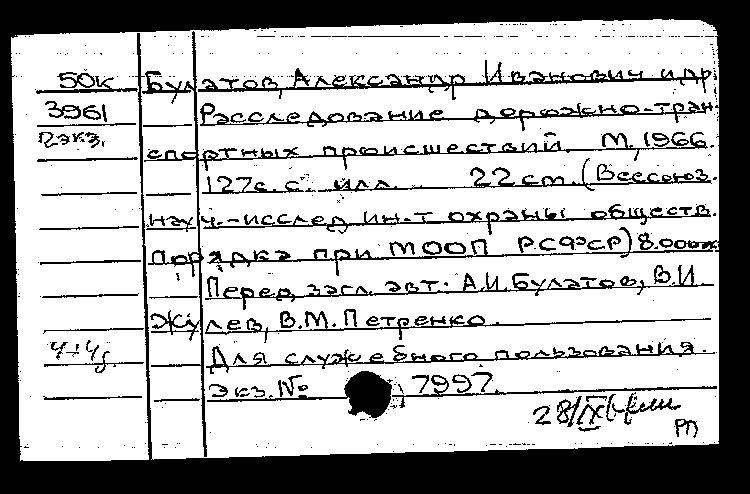 50к Булатов, Александр Иванович и др.
3961 Расследование дорожно-тран-
2 экз. спортных происшествий. М, 1966.
127с. с. илл. 22 cm. (Всесоюз.
науч.-исслед ин-т охраны обществ.
порядка при МООП РСФСР) 8.000 экз
Перед загл. авт: А.И. Булатов, В.И
Жулев, В.М. Петренко.
Для служебного пользования.
Экз. № 7997.
28/IX
РП